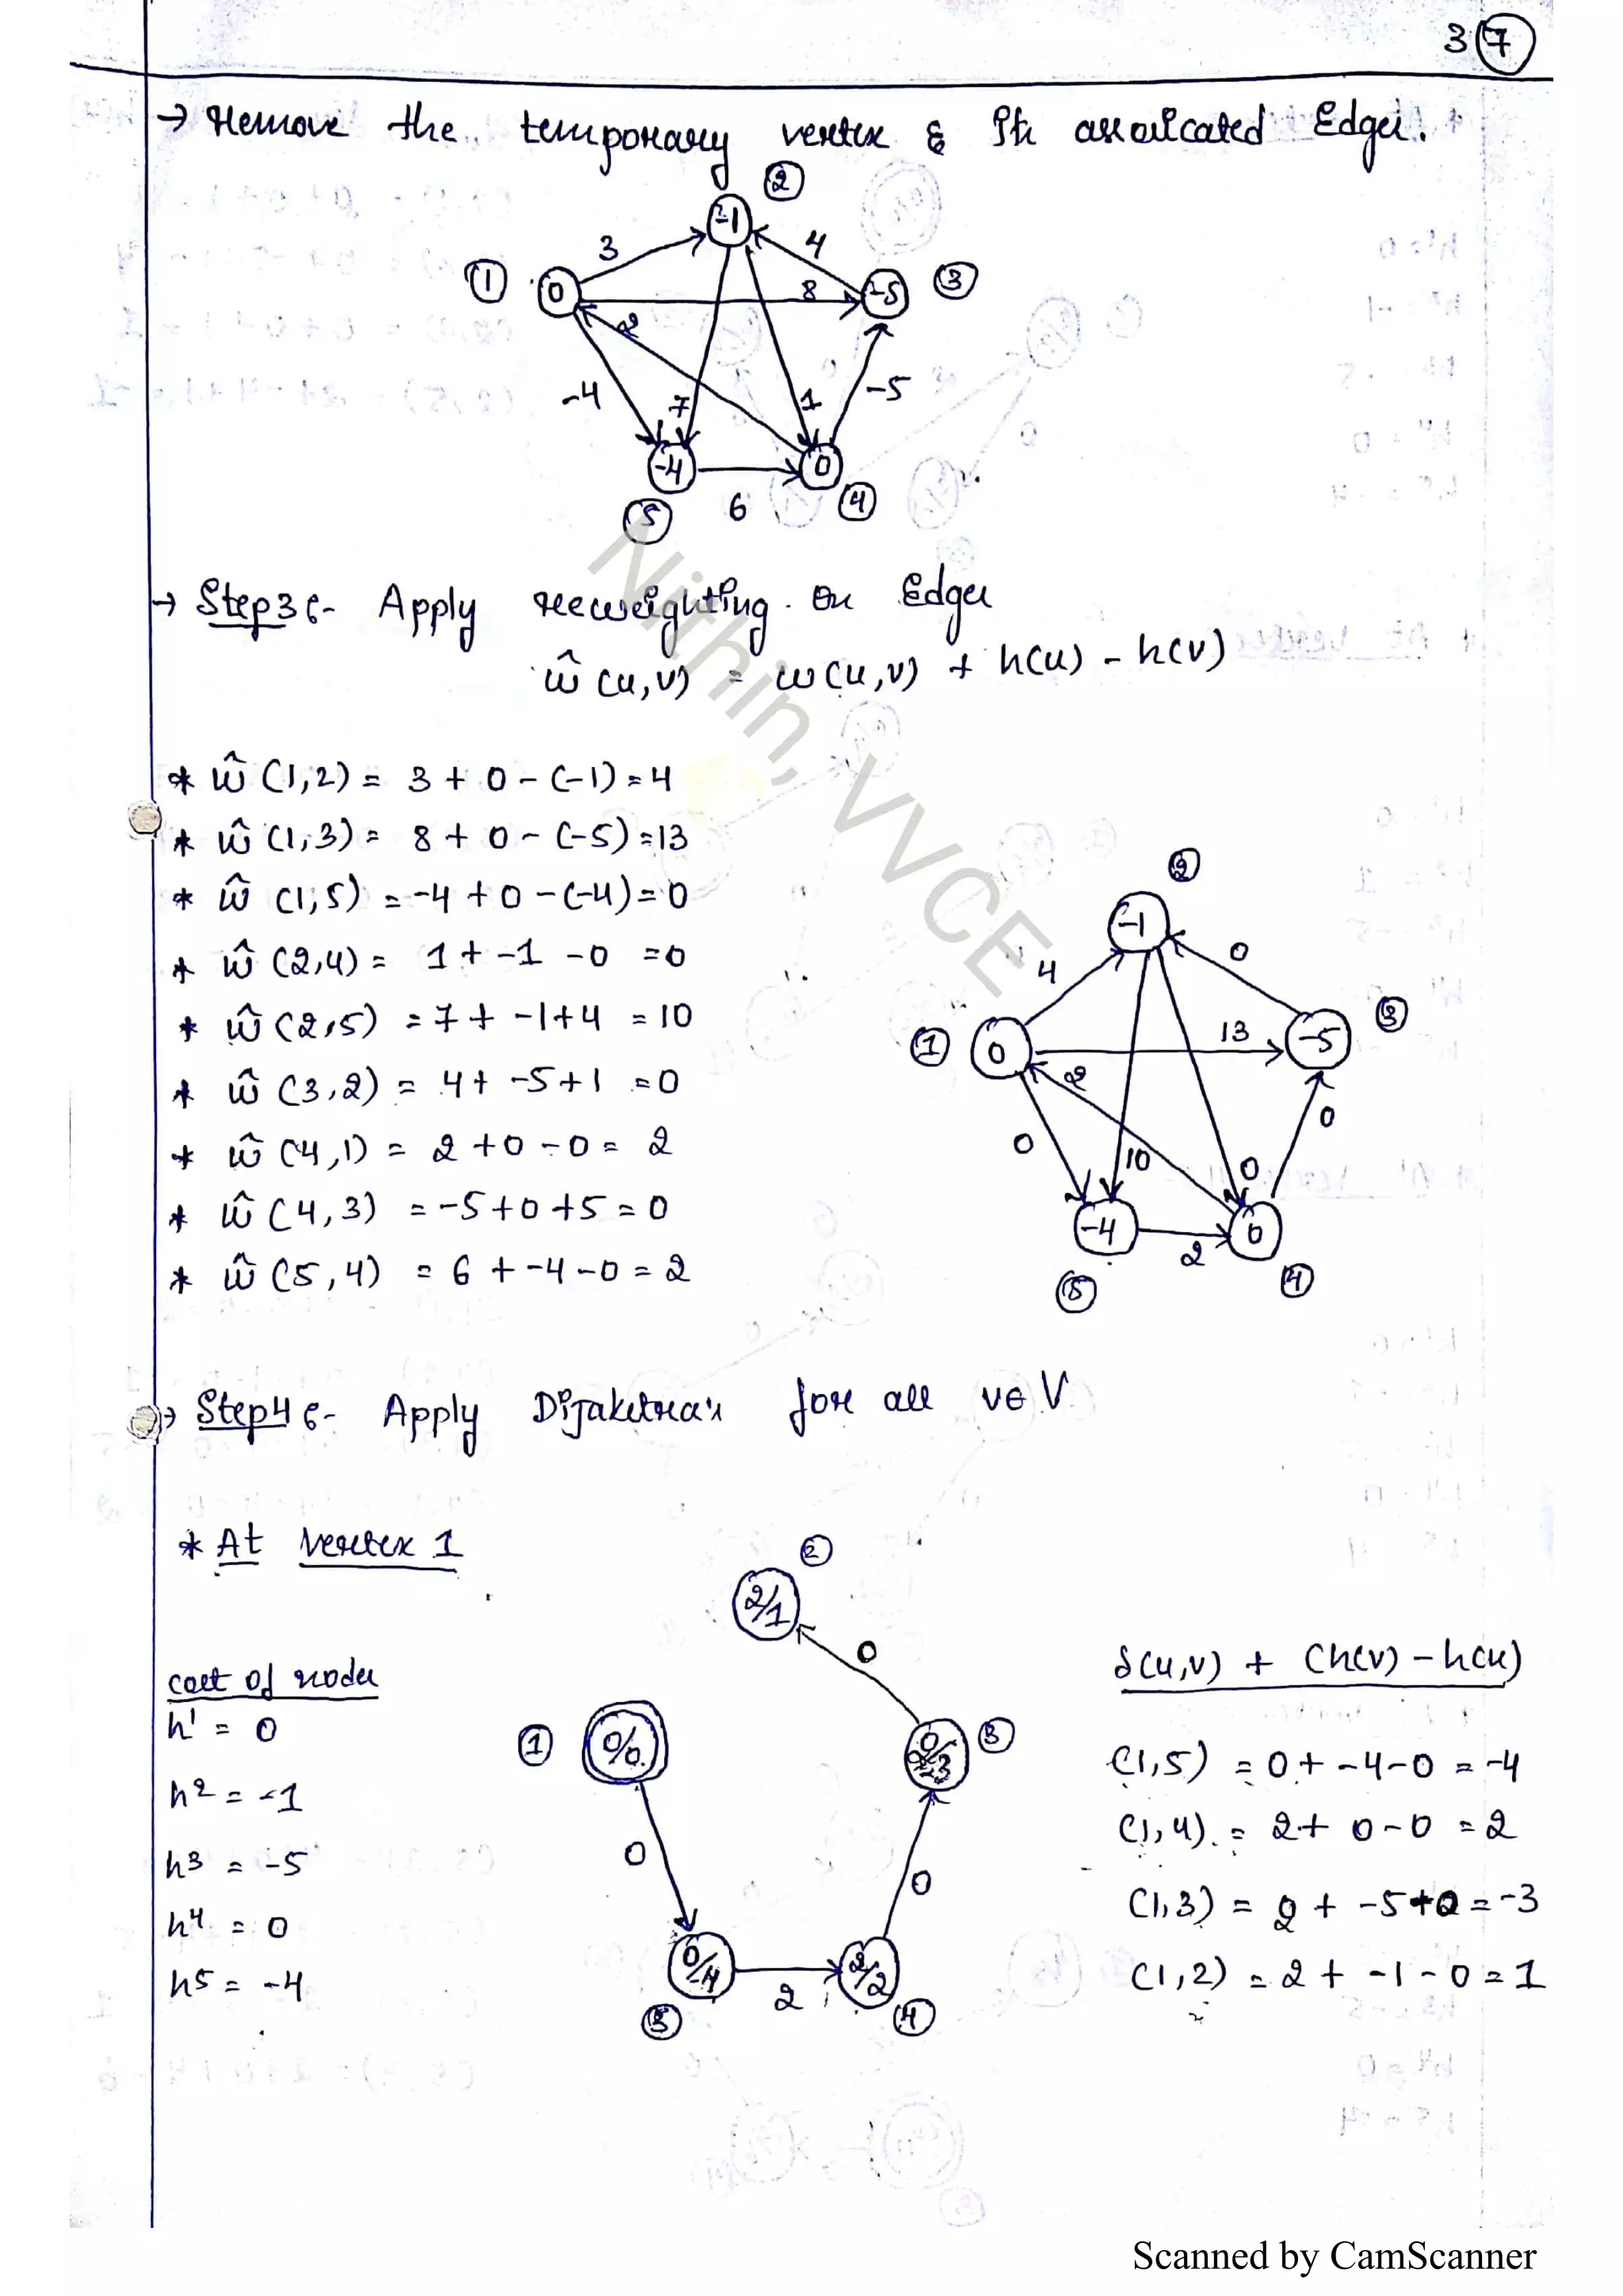 3 7
→ Remove the temporary vertex & Its associated Edges.
2
-1
3
4
1
0
8
-5
3
2
-4
7
1
-5
-4
0
5
6
4
→ Step3 :- Apply reweighting on Edges
ŵ (u,v) = w(u,v) + h(u) - h(v)
* ŵ (1,2) = 3 + 0 - (-1) = 4
* ŵ (1,3) = 8 + 0 - (-5) = 13
* ŵ (1,5) = -4 + 0 - (-4) = 0
* ŵ (2,4) = 1 + -1 - 0 = 0
* ŵ (2,5) = 7 + -1 + 4 = 10
* ŵ (3,2) = 4 + -5 + 1 = 0
* ŵ (4,1) = 2 + 0 - 0 = 2
* ŵ (4,3) = -5 + 0 + 5 = 0
* ŵ (5,4) = 6 + -4 - 0 = 2
2
-1
4
0
1
0
13
-5
3
2
0
10
0
0
-4
2
0
5
4
→ Step4 :- Apply Dijakstra's for all v∈V
* At vertex 1
cost of nodes
h1 = 0
h2 = -1
h3 = -5
h4 = 0
h5 = -4
2
2/1
0
1
0/0
3
0
0
0/-4
2
2/2
5
4
δ(u,v) + (h(v) - h(u)
(1,5) = 0 + -4 - 0 = -4
(1,4) = 2 + 0 - 0 = 2
(1,3) = 2 + -5 + 0 = -3
(1,2) = 2 + -1 - 0 = 1
Nithin, VVCE
Scanned by CamScanner